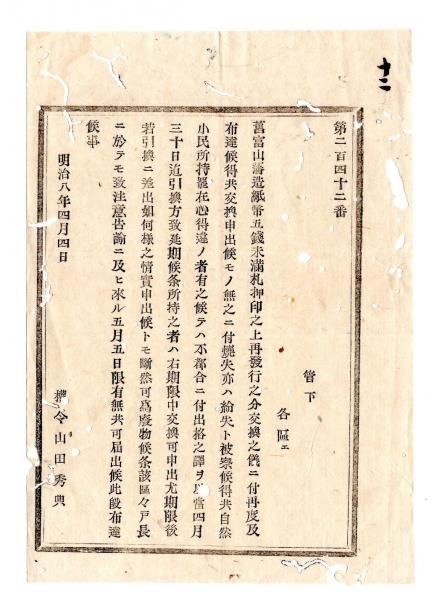 十二
第二百四十二番
管下
各區エ
舊富山藩造紙幣五錢未滿札押印之上再發行之分交換之儀ニ付再度及
布達候得共交換申出候モノ無之ニ付燒失亦ハ紛失ト被察候得共自然
小民所持罷在心得違ノ者有之候テハ不都合ニ付出格之譯ヲ以當四月
三十日迄引換方致延期候条所持之者ハ右期限中交換可申出尤期限後
若引換ニ差出如何樣之情實申出候トモ斷然可為廢物候条該區々戸長
ニ於テモ致注意告諭ニ及ヒ來ル五月五日限有無共可届出候此段布達
候事
明治八年四月四日
權令山田秀典